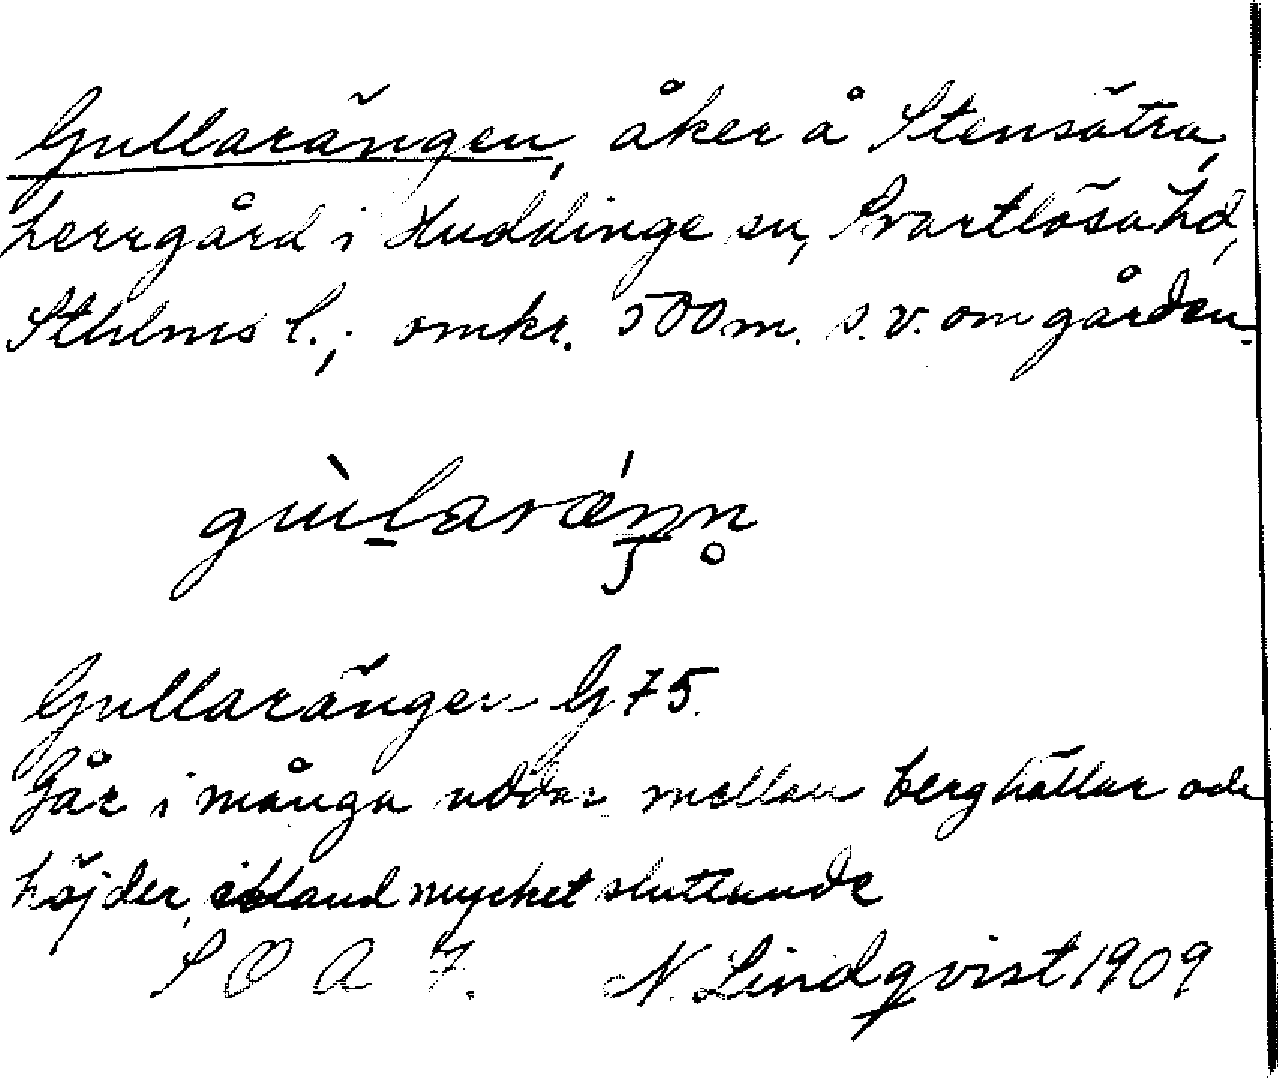 Gullarängen, åker å Stensätra,
herrgård i Huddinge sn, Svartlösa hd,
Sthlms l.; omkr. 500 m. s.v. om gården.
Gullarängen G 75.
Går i många uddar mellan berghällar och
höjder, ibland mycket sluttande
S O A 7. N. Lindqvist 1909